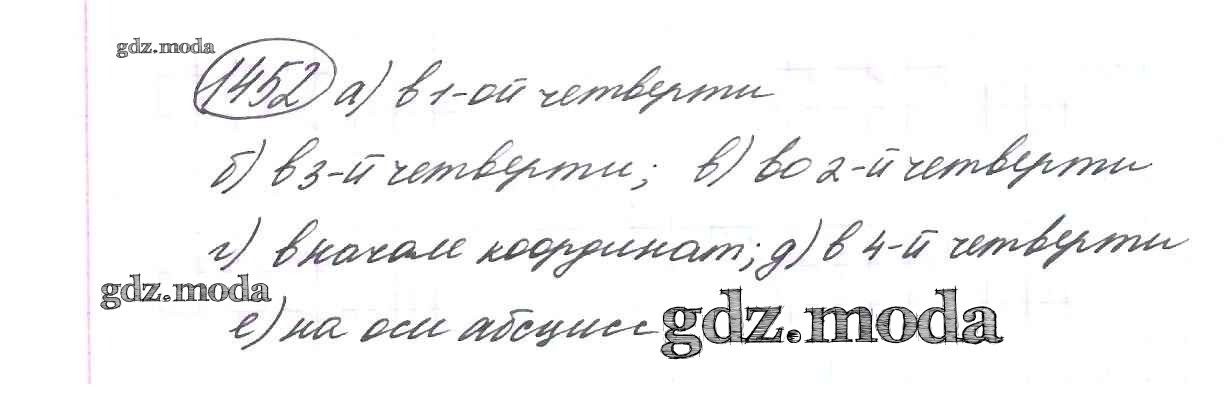 gdz.moda
1452 а) в 1-ой четверти
б) в 3-й четверти; в) во 2-й четверти
г) в начале координат; д) в 4-й четверти
gdz.moda
е) на оси абсцисс gdz.moda